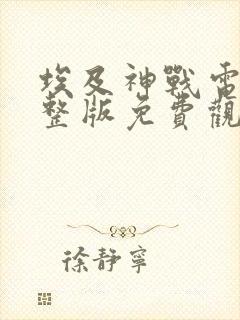 埃及神戰電
整版免費觀
徐靜寧